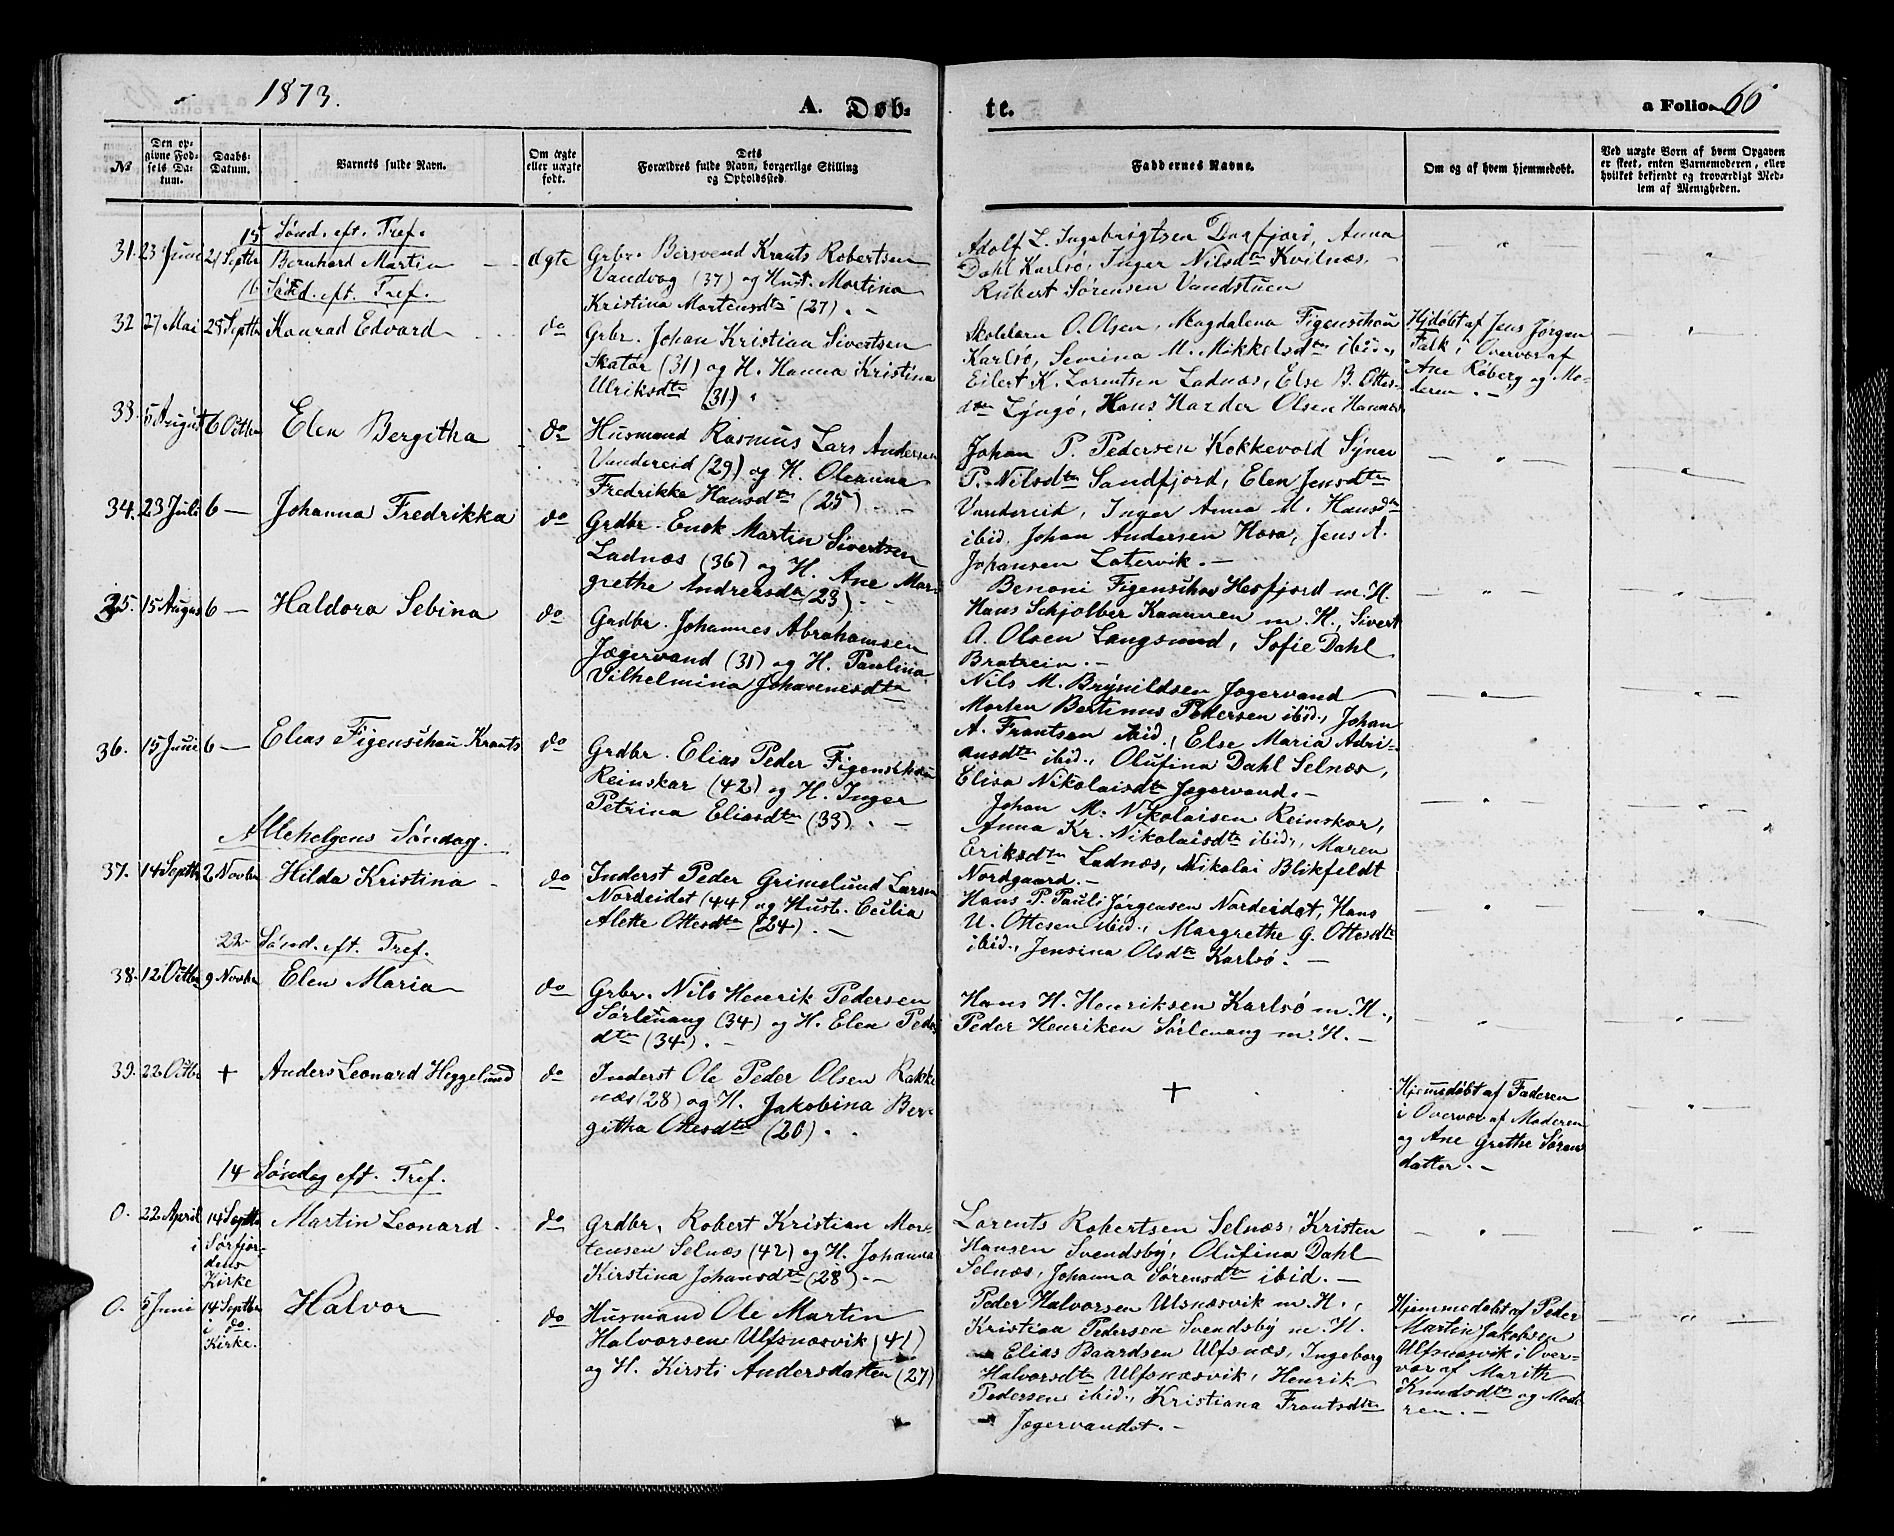 1873.
A. Døb-
te.
a Folio. 66
No
Den op-
givne Fød-
sels Da-
tum.
Daabs-
Datum.
Barnets fulde Navn.
Om ægte
eller uægte
født.
Dets
Forældres fulde Navn, borgerlige Stilling
og Opholdssted.
Faddernes Navne.
Om og af hvem hjemmedøbt.
Ved uægte Børn af hvem Opgaven
er skeet, enten Barnemoderen, eller
hvilket bekjendt og troværdigt Med-
lem af Menigheden.
15 Sønd. eft. Tref.
31. 23 Juni 21 Septbr Bernhard Martin
ægte
Grbr. Bersvend Krants Robertsen
Vandvåg (37) og Hust. Martina
Kristina Mortensdtr (27). -
Adolf L. Ingebrigtsen Dåfjord, Anna
Dahl Karlsø, Inger Nilsdtr Kvilnæs,
Robert Sørensen Vandstuen
16 Sønd. eft. Tref.
32 27 Mai 28 Septbr Konrad Edvard
do
Grbr. Johan Kristian Sivertsen
Skatør (31) og H. Hanna Kristina
Ulriksdtr (31).
Skolelærer O. Olsen, Magdalena Figenschau
Karlsø, Semina M. Mikkelsdtr ibid.,
Eilert K. Lorentsen Ladnæs, Else B. Ottes-
dtr Lyngø, Hans Harder Olsen Hannes
Hjdøbt af Jens Jørgen
Falk i Overvær af
Ane Råberg og Mo-
deren. -
33. 5 August 6 Octbr Elen Bergitha
do
Husmand Rasmus Lars Andersen
Vandereid (29) og H. Oleanna
Fredrikke Hansdtr (25). -
Johan P. Pedersen Kokkevold Syner
P. Nilsdtr Sandfjord, Elen Jensdtr
Vandereid, Inger Anna M. Hansdtr
ibid. Johan Andersen Hoså, Jens A.
Johansen Latervik. -
34. 23 Juli 6 — Johanna Fredrikka
do
Grdbr. Enok Martin Sivertsen
Ladnæs (36) og H. Ane Mar-
grethe Andreasda (23). -
Benoni Figenschou Hesfjord m. H.
Hans Schjølber Kammen m. H., Sivert
A. Olsen Langsund, Sofie Dahl
Bratrein. -
35. 15 August 6 — Haldora Sebina
do
Grdbr. Johannes Abrahamsen
Jægervand (31) og H. Paulina
Vilhelmina Johannesdtr
Nils M. Brynildsen Jægervand
Morten Bertinus Pedersen ibid., Johan
A. Frantsen ibid., Else Maria Adri-
ansdtr ibid., Olufina Dahl Selnæs,
Elisa Nikolaisdtr Jægervand. -
36. 15 Juni 6 — Elias Figenschau Krants
do
Grdbr. Elias Peder Figenschau
Reinskar (42) og H. Inger
Petrina Eliasdtr (33). -
Johan M. Nikolaisen Reinskar,
Anna Kr. Nikolaisdtr ibid., Maren
Eriksdtr Ladnæs, Nikolai Blikfeldt
Nordgaard. -
Allehelgens Søndag.
37. 14 Septbr 2 Novbr Hilda Kristina
do
Inderst Peder Grimelund Larsen
Nordeidet (44) og Hust. Cecilia
Alette Ottesdtr (24). -
Hans P. Pauli Jørgensen Nordeidet, Hans
U. Ottesen ibid., Margrethe G. Ottesdtr
ibid., Jensina Olsdtr Karlsø. -
22 Sønd. eft. Tref.
38. 12 Octbr 9 Novbr Elen Maria
do
Grbr. Nils Henrik Pedersen
Sørlenang (34) og H. Elen Peds-
dtr (34). -
Hans H. Henriksen Karlsø m. H.,
Peder Henriken Sørlenang m. H. -
39. 22 Octbr + Anders Leonard Heggelund
do
Inderst Ole Peder Olsen Rakke
næs (28) og H. Jakobina Ber-
githa Ottesdtr (20).
+
Hjemmedøbt af Faderen
i Overvær af Moderen
og Ane Grethe Sørens
datter. -
14 Søndag eft. Tref.
0. 22 April 14 Septbr Martin Leonard
i
Sørfjor-
dens
Kirke
do
Grdbr. Robert Kristian Mor-
tensen Selnæs (42) og H. Johanna
Kirstina Johansdtr (28). -
Lorents Robertsen Selnæs, Kristen
Hansen Svendsby, Olufina Dahl
Selnæs, Johanna Sørensdtr ibid. -
0. 5 Juni 14 Septbr Halvor
i do.
Kirke.
do
Husmand Ole Martin
Halvorsen Ulfsnæsvik (41)
og H. Kirsti Andersdatter (27)
Peder Halvorsen Ulsnæsvik m. H.,
Kristian Pedersen Svendsby m. H.
Elias Baardsen Ulfsnæs, Ingeborg
Halvorsdtr Ulfsnæsvik, Henrik
Pedersen ibid., Kristiana Frantsdtr
Jægervandet. -
Hjemmedøbt af Peder
Martin Jakobsen
Ulfsnæsvik i Over-
vær af Marith
Knudsdtr og Mode
ren. -